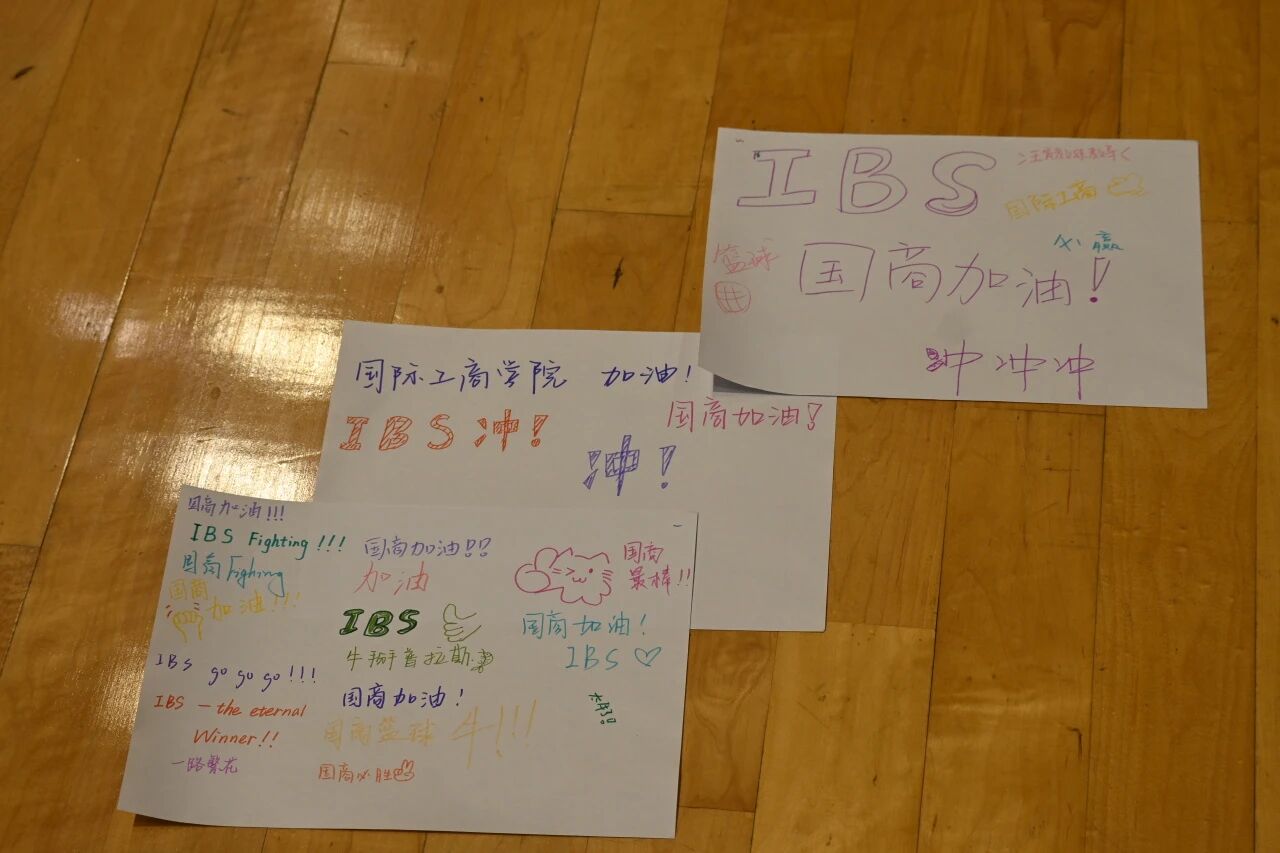 IBS
国际工商
必赢
篮球
国商加油!
冲冲冲
国际工商学院 加油!
国商加油!
IBS冲!
冲!
国商加油!!!
IBS Fighting!!!
国商Fighting
国商
加油!!!
IBS go go go!!!
IBS — the eternal
Winner!!
一路繁花
国商加油!!
加油
IBS
国商加油!
国商篮球 牛!!!
国商必胜
国商
最棒!!
国商加油!
IBS